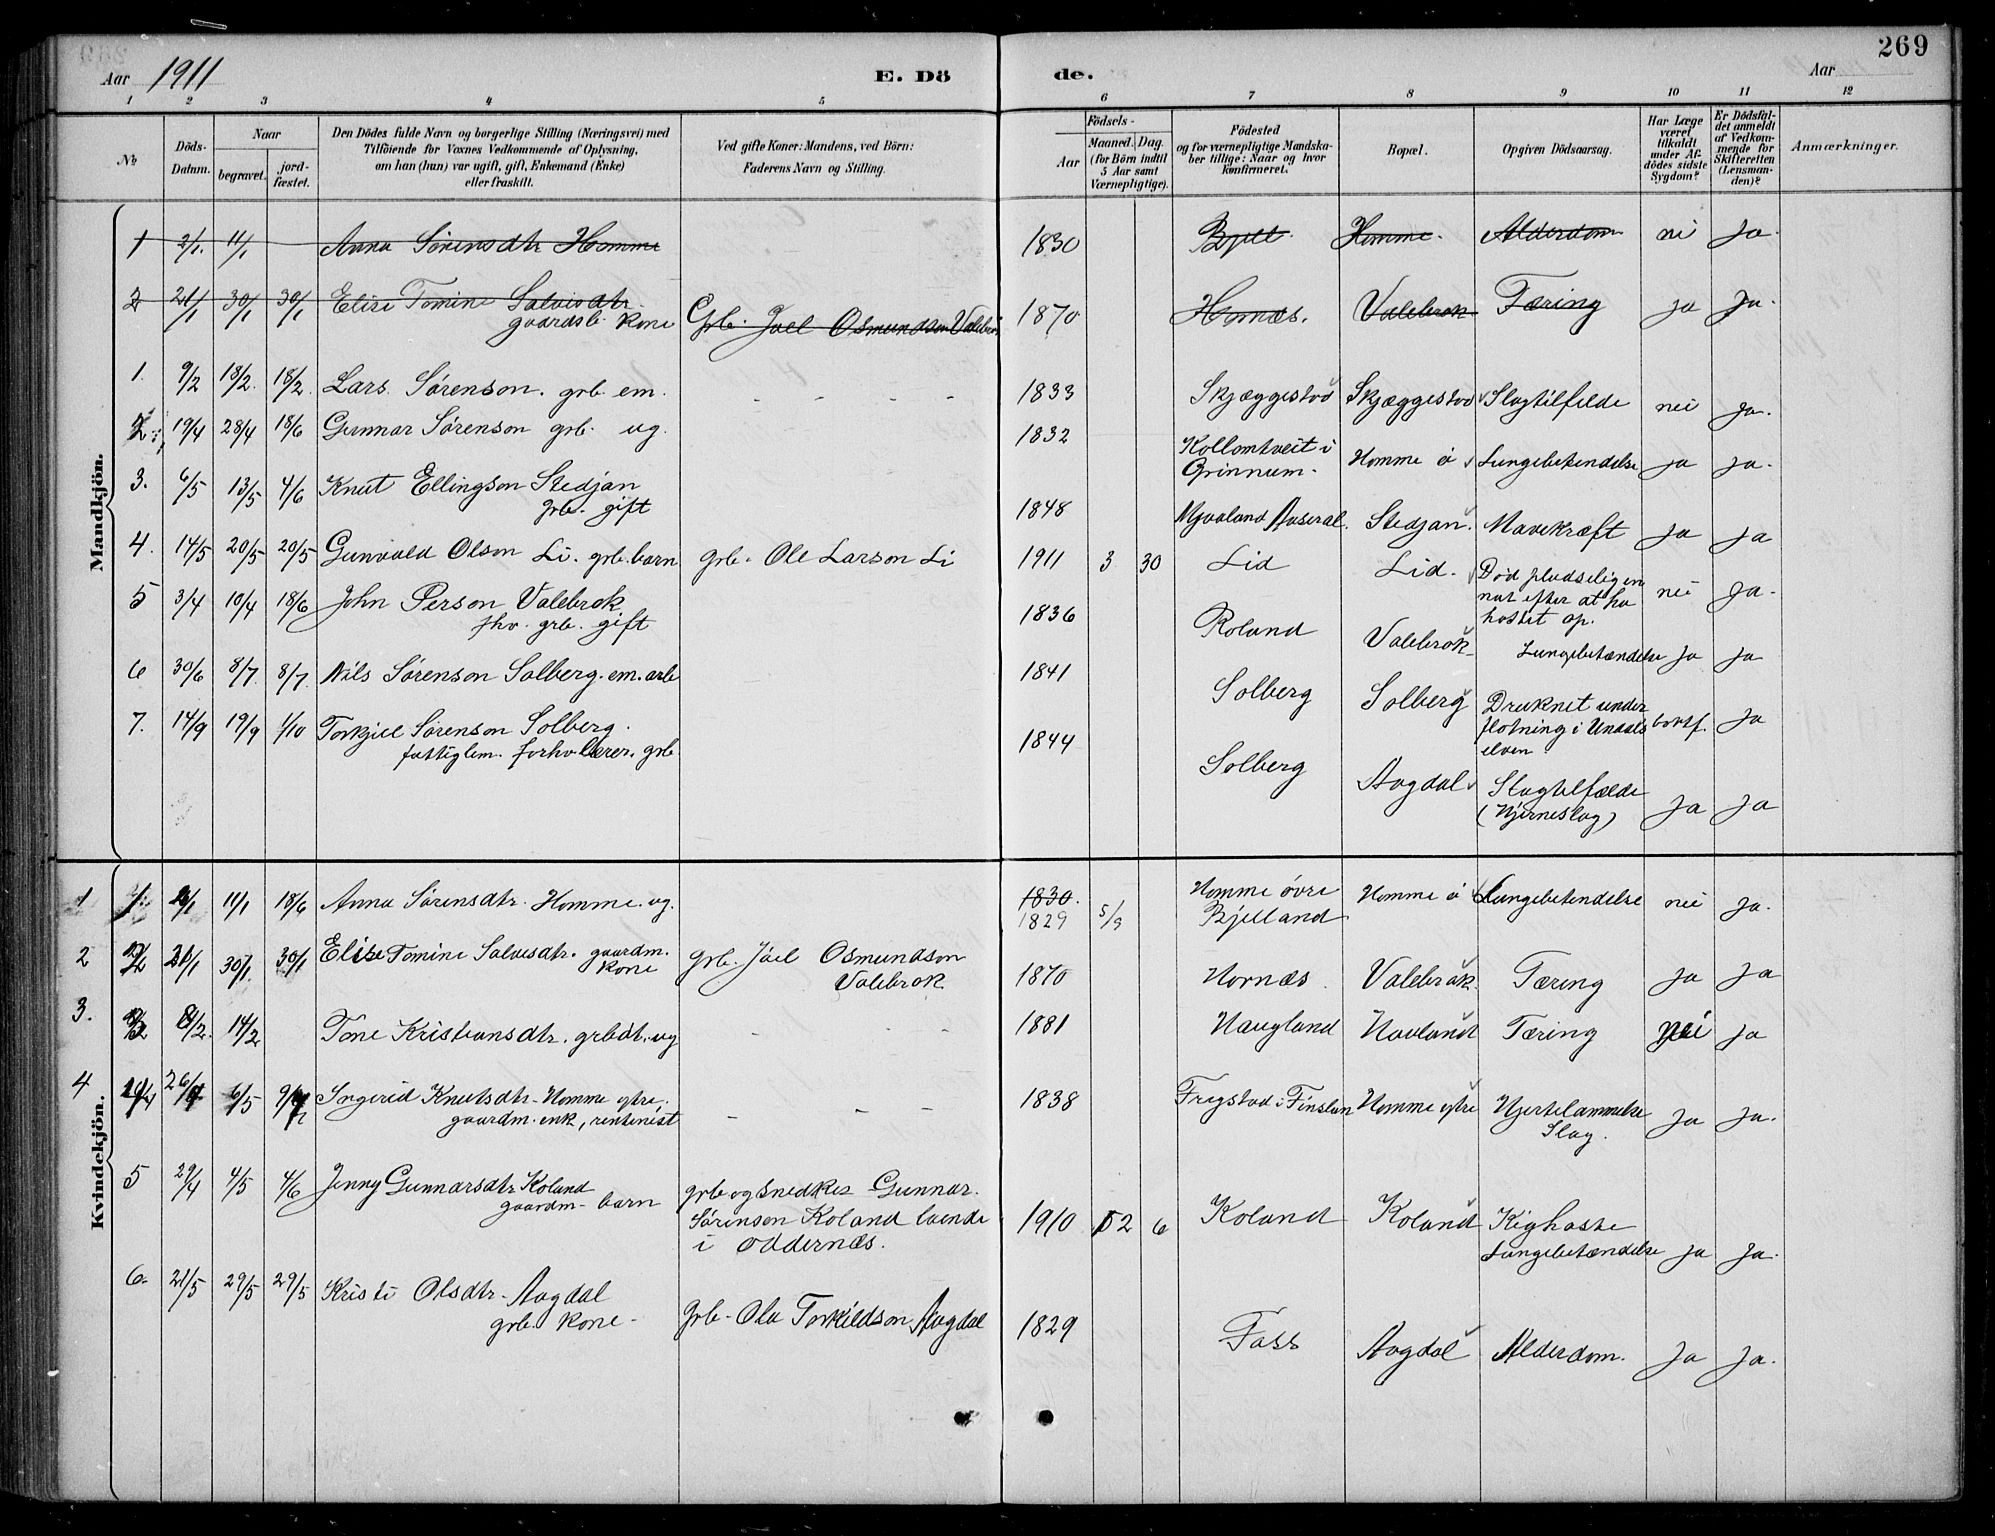 269
Aar 1911 E. Dö de. Aar
1 2 3 4 5 6 7 8 9 10 11 12
№
Döds-Datum.
Naar
begravet.
jord-fæstet.
Den Dödes fulde Navn og borgerlige Stilling (Næringsvei) med
Tilföiende for Voxnes Vedkommende af Oplysning,
om han (hun) var ugift, gift, Enkemand (Enke)
eller fraskilt.
Ved gifte Koner: Mandens, ved Börn:
Faderens Navn og Stilling.
Födsels-
Aar
Maaned. Dag.
(for Börn indtil
5 Aar samt
Værnepligtige).
Födested
og for værnepligtige Mandska-
ber tillige: Naar og hvor
konfirmeret.
Bopæl.
Opgiven Dödsaarsag.
Har Læge
været
tilkaldt
under Af-
dödes sidste
Sygdom?
Er Dödsfal-
det anmeldt
af Vedkom-
mende for
Skifteretten
(Lensman-
den)?
Anmærkninger.
Mandkjön.
1 2/1. 11/1 Anna Sörensdtr Homme 1830 Bjell. Homme. Alderdom nei Ja.
2 21/1 30/1 30/1 Elise Tomine Salvisdtr. gaardsb. kone Grb. Joel Osmundson Valebrok 1870 Hornæs. Valebrok Tæring ja Ja.
1. 9/2 18/2. 18/2. Lars Sörenson. grb. em. - - - - 1833 Skjæggestod Skjæggestod Slagtilfelde nei Ja.
2. 19/4 28/4 18/6 Gunnar Sörenson grb. ug. 1832 Kollomtveit i Grinnum. Homme ö Lungebetendelse ja Ja.
3. 6/5 13/5 4/6 Knut Ellingson Stedjan grb. gift 1848 Mjoaland Aaseral. Stedjan. Mavekræft Ja Ja
4. 14/5 20/5 20/5 Gunvald Olson Li. grb. barn grb. Ole Larson Li 1911 3 30 Lid Lid. Död pludselig en nat efter at ha hostet op. nei Ja.
5 3/4 10/4 18/6 John Person Valebrok fhv. grb. gift 1836 Roland Valebrok Lungebetændelse Ja Ja
6 30/6 8/7. 8/7. Nils Sörenson Solberg. em. arb 1841 Solberg Solberg Druknet under flotning i Undals elven bortf. Ja
7. 14/9 19/9 1/10 Torkjiel Sörenson Solberg. fattiglem. forhv. lærer. grb 1844 Solberg Aagdal Slagtelfælde (Hjerneslag) Ja Ja
Kvindekjön.
1 2/1 11/1 18/6 Anna Sörensdtr. Homme. ug. 1830. 1829 5/9 Homme övre Bjelland Homme ö Lungebetendelse nei Ja.
2 21/1 30/1. 30/1 Elise Tomine Salvesdtr. gaardm. kone grb. Joel Osmundson Valebrok 1870 Hornæs Valebrok. Tæring Ja Ja
3. 8/2. 14/2 Tone Kristiansdtr. grbdt. ug - - - 1881 Haugland Havland Tæring nei Ja
4 26/4 6/5 Ingerid Knutsdtr. Homme ytre. gaardm. enk, rentenist - - - 1838 Frigstad i Finsland Homme ytre Hjertelammelse Slag. Ja Ja.
5 29/4 4/5 4/6 Jenny Gunnarsdtr Koland gaardm - barn grb og snedker Gunnar. Sörenson Koland boende i Oddernæs. 1910 2 6 Koland Koland Kighoste Lungebetændelse ja Ja.
6. 21/5 29/5 29/5 Kristi Olsdtr. Aagdal grb. kone - Grb - Ola Torkildson Aagdal 1829 Foss Aagdal Alderdom. Ja Ja.